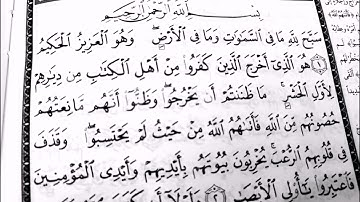 بِسْمِ اللَّهِ الرَّحْمَٰنِ الرَّحِيمِ
سَبَّحَ لِلَّهِ مَا فِي السَّمَٰوَٰتِ وَمَا فِي الْأَرْضِ ۖ وَهُوَ الْعَزِيزُ الْحَكِيمُ
١ هُوَ الَّذِي أَخْرَجَ الَّذِينَ كَفَرُوا مِنْ أَهْلِ الْكِتَٰبِ مِن دِيَٰرِهِمْ
لِأَوَّلِ الْحَشْرِ ۚ مَا ظَنَنتُمْ أَن يَخْرُجُوا ۖ وَظَنُّوا أَنَّهُم مَّانِعَتُهُمْ
حُصُونُهُم مِّنَ اللَّهِ فَأَتَىٰهُمُ اللَّهُ مِنْ حَيْثُ لَمْ يَحْتَسِبُوا ۖ وَقَذَفَ
فِي قُلُوبِهِمُ الرُّعْبَ ۚ يُخْرِبُونَ بُيُوتَهُم بِأَيْدِيهِمْ وَأَيْدِي الْمُؤْمِنِينَ
فَاعْتَبِرُوا يَٰٓأُولِي الْأَبْصَٰرِ ٢